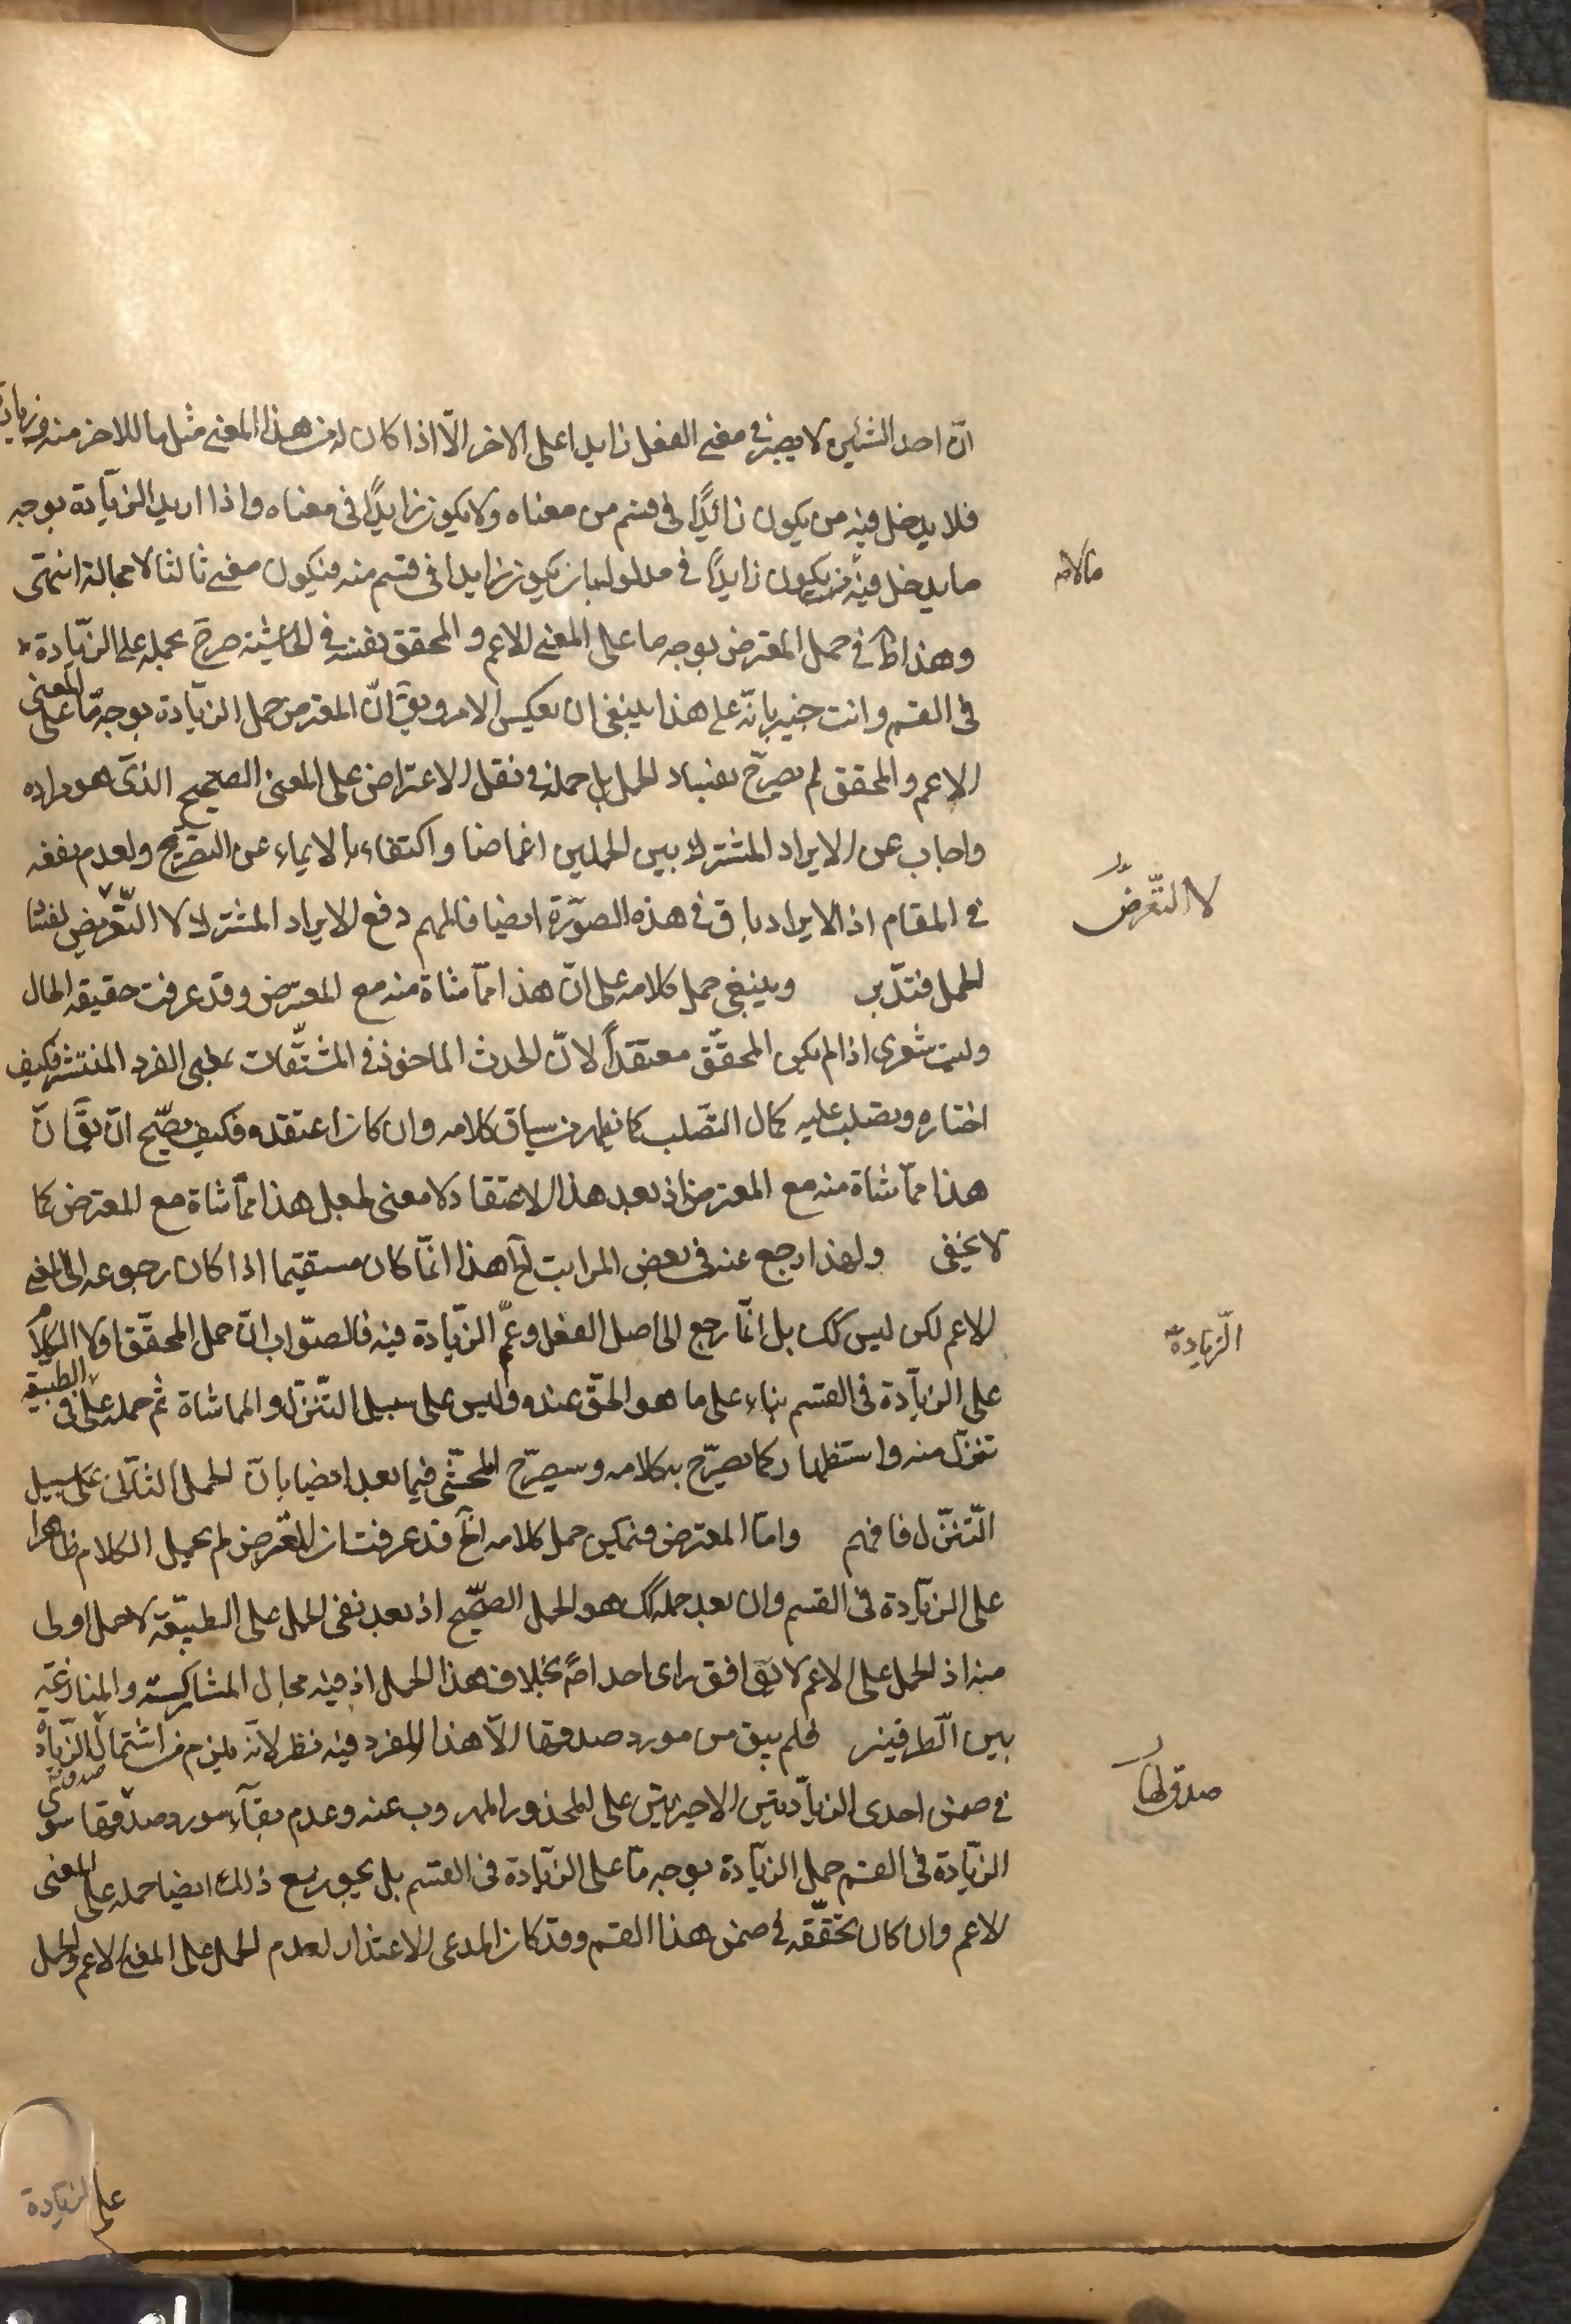 انّ احد الشئين لا يصير فى معنى الفعل زايدا على الاخر الّا اذا كان له من هذا المعنى مثل ما للاخر منه وزيادة
فلا يدخل فيه من يكون زائدًا فى قسم من معناه ولا يكون زايدًا فى معناه واذا اريد الزيادة بوجه
ما يدخل فيه من يكون زايدًا فى مدلولها بان يكون زايدا فى قسم منه فيكون معنى ثالثا لا محالة انتهى
وهذا ظ فى حمل المعترض بوجه ما على المعنى الاعم و المحقق نفسه فى الحاشية صرح بحمله على الزيادة
فى القسم وانت خبير بانّه على هذا ينبغى ان يعكس الامر ويق انّ المعترض حمل الزيادة بوجه ما على المعنى
الاعم والمحقق لم يصرح بفساد الحمل بل حمله فى نقل الاعتراض على المعنى الصحيح الذى هو مراده
واجاب عن الايراد المشترك بين الحملين اغماضا واكتفاء بالايماء عن التصريح ولعدم نفعه
فى المقام اذ الايراد باق فى هذه الصورة ايضا فالمهم دفع الايراد المشترك لا التعريض لفساد
الحمل فتدبر وينبغى حمل كلامه على انّ هذا مماشاة منه مع المعترض وقد عرفت حقيقة الحال
وليت شعرى اذا لم يكن المحقّق معتقداً لانّ الحدث الماخوذ فى المشتقات بمعنى الفرد المنتشر فكيف
اختاره ويصلب عليه كمال التصلب كما يظهر من سياق كلامه وان كان اعتقده فكيف يصح ان يق انّ
هذا مماشاة منه مع المعترض اذ بعد هذا الاعتقاد لا معنى لجعل هذا مماشاة مع المعترض كما
لا يخفى ولهذا رجع عنه فى بعض المراتب الخ هذا انّما كان مستقيما اذا كان رجوعه الى المعنى
الاعم لكن ليس كك بل انّما رجع الى اصل الفعل وعمّم الزيادة فيه فالصواب انّ حمل المحقّق اولا الكلام
على الزيادة فى القسم بناء على ما هو الحق عنده وليس على سبيل التنزل والمماشاة ثم حمله على الطبيعة
تنزل منه واستظهار كما يصرّح به كلامه وسيصرّح المحشّى فيما بعد ايضا بان الحمل الثانى على سبيل
التنزل فافهم وامّا المعترض فيمكن حمل كلامه الخ قد عرفت ان المعترض لم يحمل الكلام ظاهرا
على الزيادة فى القسم وان بعد حمله كك هو الحمل الصحيح اذ بعد نفى الحمل على الطبيعة لا حمل اولى
منه اذ الحمل على الاعم لا يوافق راى احد اصً بخلاف هذا الحمل اذ فيه مجال المشاركة والمنازعة
بين الطرفين فلم يبق من مورد صدقها الّا هذا الفرد فيه نظر لانّه يلزم من اشتماله الزيادة
فى ضمن احدى الزيادتين الاخيرتين على المحذور المهروب عنه وعدم بقاء مورد صدقها سوى
الزيادة فى القسم حمل الزيادة بوجه ما على الزيادة فى القسم بل يجوز مع ذلك ايضا حمله على المعنى
الاعم وان كان تحقّقه فى ضمن هذا القسم وقد كان المدعى الاعتذار لعدم الحمل على المعنى الاعم والحمل
على الزيادة
لا التّعرض
الزيادة
صدقها